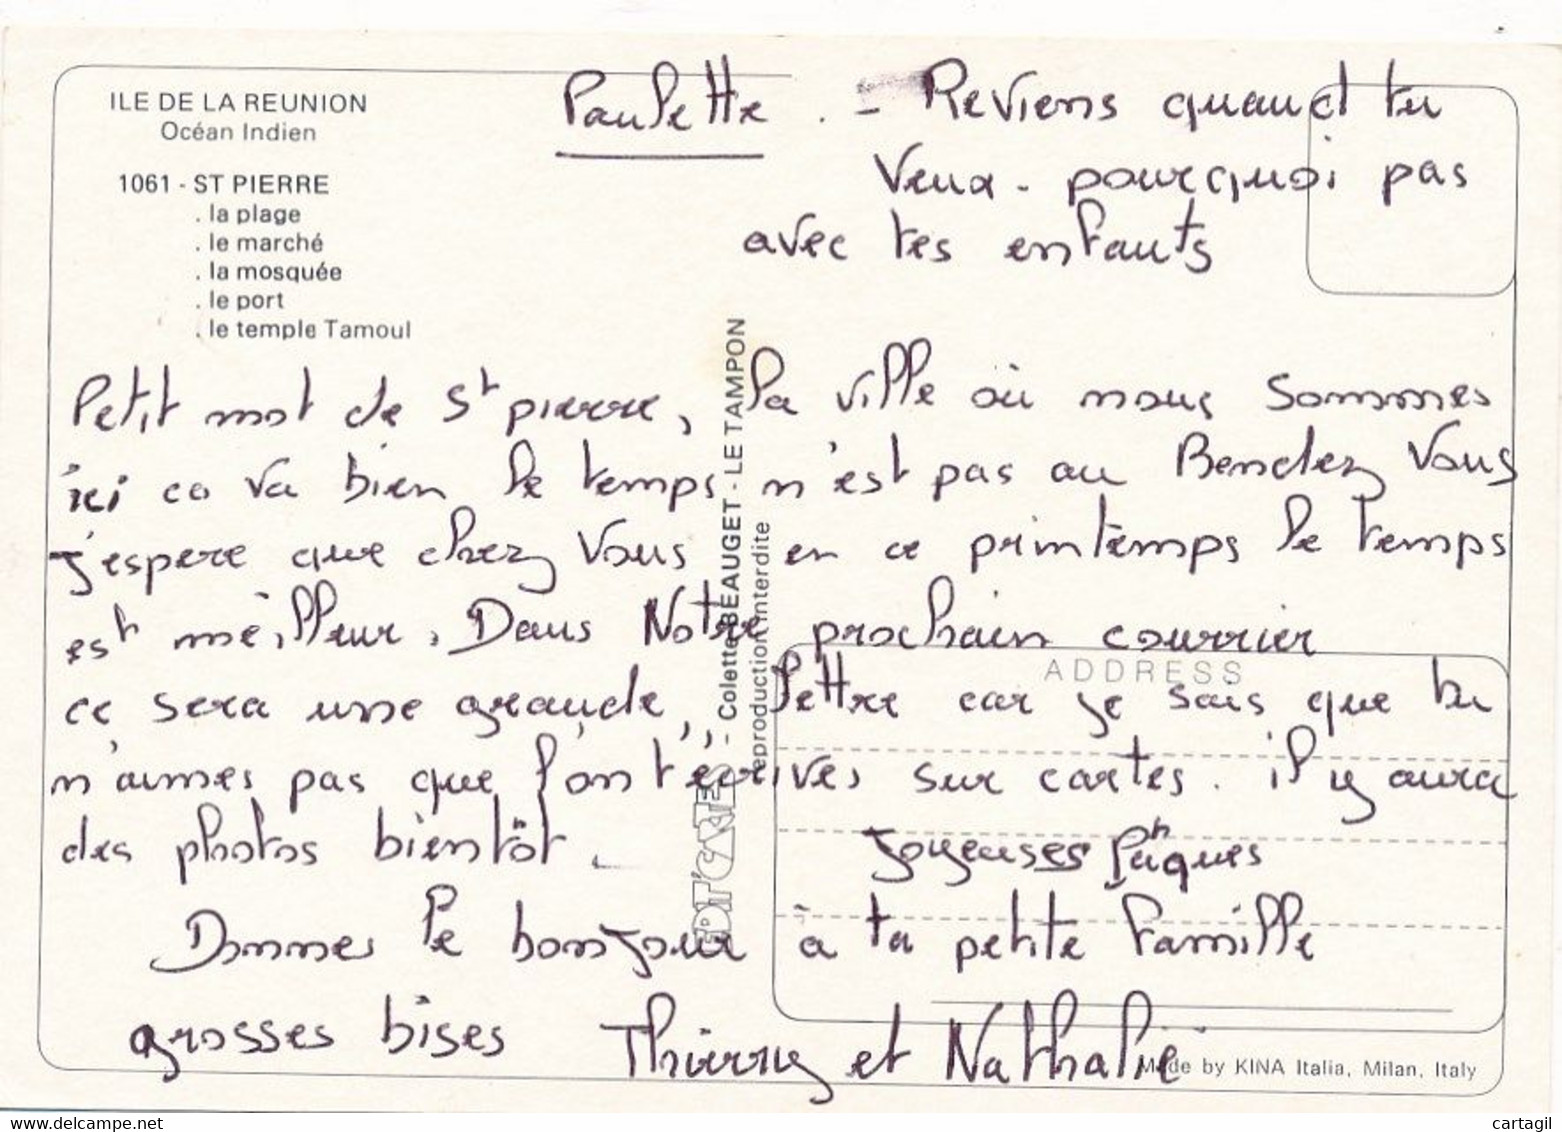 ILE DE LA REUNION
Océan Indien
1061 - ST PIERRE
. la plage
. le marché
. la mosquée
. le port
. le temple Tamoul
Paulette . - Reviens quand tu
veux - pourquoi pas
avec tes enfants
Petit mot de St pierre, la ville où nous sommes
ici ca va bien le temps n'est pas au Rendez Vous
J'espere que chez Vous en ce printemps le temps
est meilleur. Dans Notre prochain courrier
ce sera une grande, lettre car je sais que tu
n'aimes pas que l'on t'écrives sur cartes. il y aura
des photos bientôt.
Joyeuses Pâques
Donnes le bonjour à ta petite famille
grosses bises Thierry et Nathalie
EDIT'CARTES - Colette BEAUGET - LE TAMPON
reproduction interdite
ADDRESS
Made by KINA Italia, Milan, Italy
www.cartagil.com
cartagil